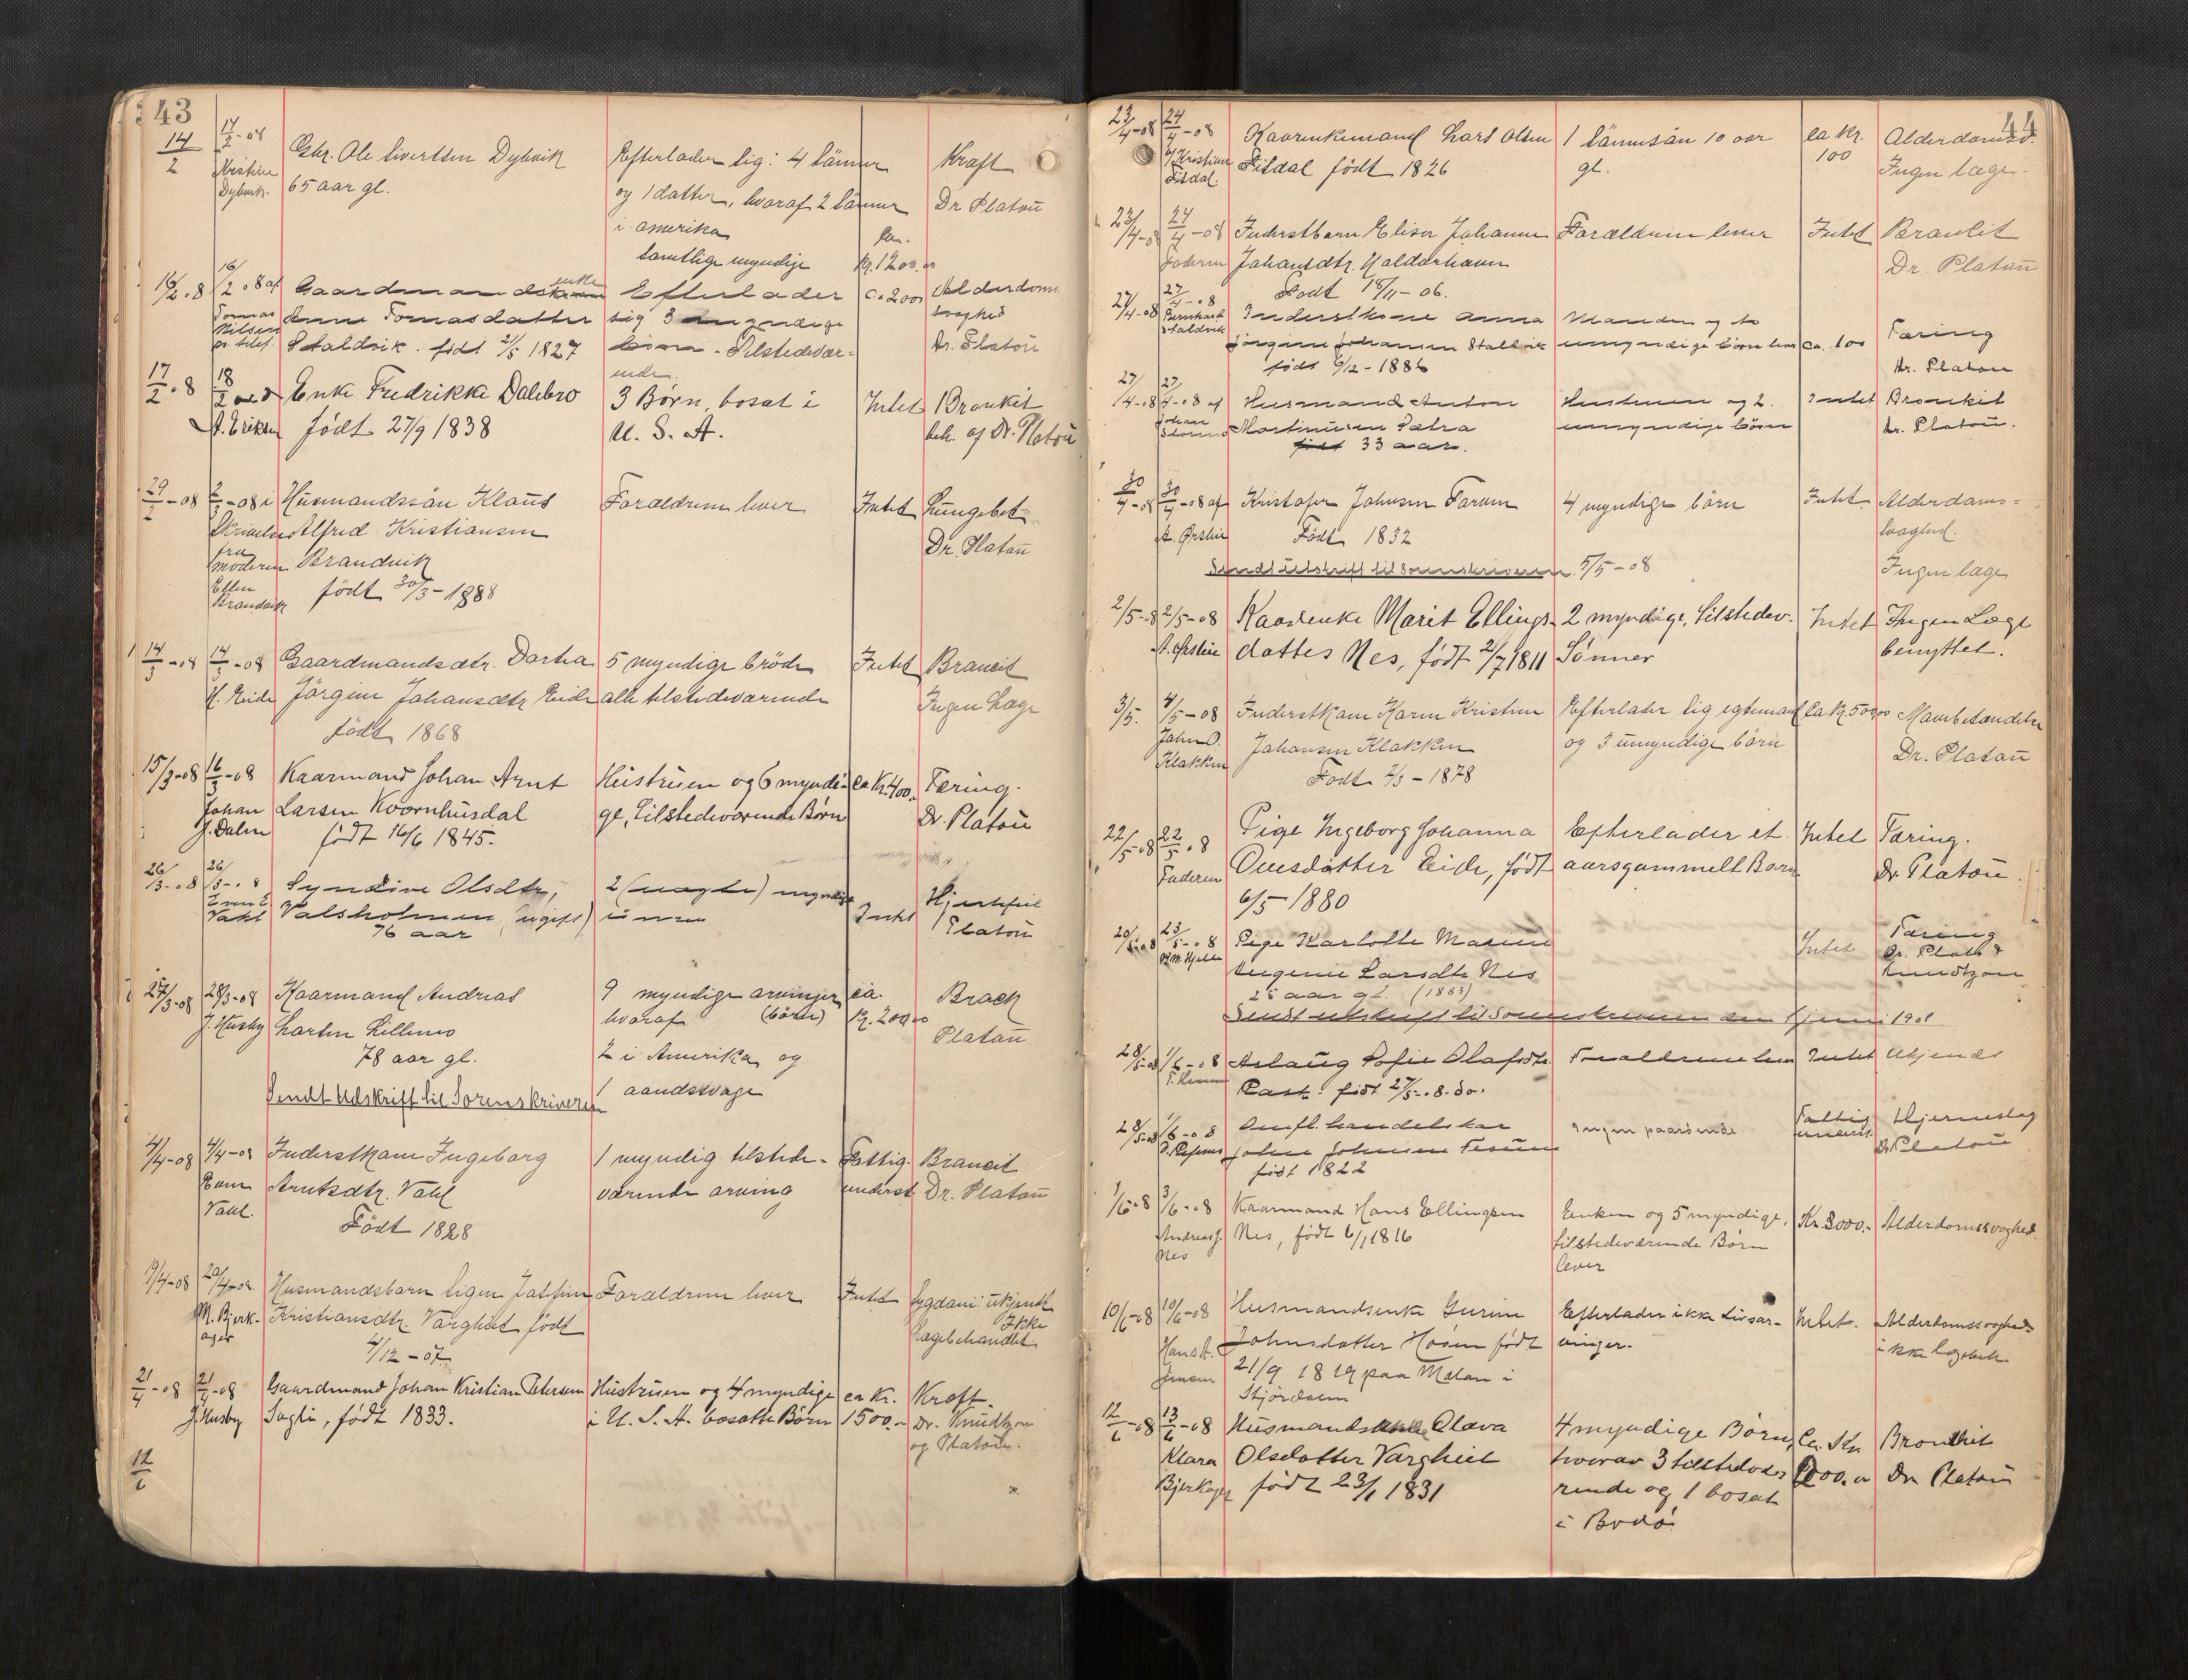 43
14/2 17/2-08 Gbr. Ole Sivertsen Dybvik Efterlader sig: 4 Sönner Kraft
Kristine Dybvik. 65 aar gl. og 1 datter, hvoraf 2 Sönner Dr Platoü
i amerika
Samtlige myndige kr. 1200.00
16/2.8 16/2.08 af Gaardmandsenke Efterlader Ca 200 Alderdoms
Tomas Nilsen Anne Tomasdatter sig 3 myndige svaghed
Staldvik. född 2/5 1827 börn. Tilstedevær= Dr. Platoü
ende.
17/2.8 18/2 Enke Fredrikke Dalebro 3 Børn, bosat i Intet Bronkit
A. Eriksen født 27/9 1838 U. S. A. beh. af Dr. Platoü
29/2-08 2/3-08 i Husmandssön Klaüs Forældrene lever Intet Lungebet.
Skrivelse Alfred Kristiansen
fra moderen Brandvik Dr. Platoü
Ellen Brandvik født 30/3-1888
14/3-08 14/3-08 Gaardmandsdtr. Dortea 5 myndige brödre Intet Broncit
H. Eide Jörgine Johansdtr Eide alle tilstedeværende Ingen Læge
född 1868
15/3-08 16/3-08 Kaarmand Johan Arnt Hüstrüen og 6 myndi- ca Kr. 400. Tæring.
Johan Larsen Koornhüsdal ge, Tilstedeværende Børn Dr. Platoü
J. Dalen født 16/6 1845.
26/3-08 26/3-08 Syndive Olsdtr, 2 myndige Hjertefeil
Vahl Valsholmen (ugift) Intet Platoü
76 aar
27/3-08 28/3-08 Kaarmand Andreas 9 myndige arvinger ca. Brock
J. Husby Larsen Lillemo hvoraf (börn) Kr. 200.00 Platoü
78 aar gl. 2 i Amerika og
Sendt Udskrift til Sorenskriveren 1 aandssvage
4/4-08 4/4-08 Inderstkone Ingeborg 1 myndig tilstede- Fattig- Broncit
Arntsdtr. Vahl værende arving underst. Dr. Platoü
Vahl. Född 1828
19/4-08 20/4-08 Husmandsbarn Signe Josefine Forældrene lever Intet Sygdom: ukjendt
M. Bjerk- Kristiansdtr. Varghiet født Ikke
ager 4/12-07 Lægebehandlet
21/4-08 21/4-08 Gaardmand Johan Kristian Petersen Hüstrüen og 4 myndige ca Kr. Kræft.
J. Husby Saglie, født 1833. i U. S. A. bosatte Børn 1500.- Dr. Knudtzon
og Platoü.
12/6
44
23/4-08 24/4-08 Kaarenkemand Lars Olsen 1 Sönnesön 10 aar ca Kr. Alderdomssv.
Kristian Fisdal Fisdal född 1826 gl. 100 Ingen læge.
23/4-08 24/4-08 Inderstbarn Elise Johanne Forældrene lever Intet Bronkit
Faderen Johansdtr. Halderhavn Dr. Platoü
Född 18/11-06.
27/4-08 27/4-08 Inderstkone Anna Manden og to Tæring
Bernhard Staldvik Jörgine Johansen Staldvik umyndige börn lever Ca. 100
född 6/12-1886 Dr. Platou
27/4-08 27/4-08 af Husmand Anton Hustruen og 2. Intet Bronkit
Johan Martinusen umyndige börn Dr. Platoü.
33 aar.
30/4-08 30/4-08 af Kristofer Johnsen Forum 4 myndige börn Intet Alderdoms=
A. Ørslie Född 1832 svaghed.
Sendt udskrift til Sorenskriveren 5/5-08 Ingen læge
2/5-08 2/5-08 Kaarenke Marit Ellings- 2 myndige, Tilstedev. Intet Ingen Læge
A. Ørslie dattes Nes, født 2/7 1811 Sønner benyttet.
3/5. 4/5-08 Inderstkone Karen Kristine Efterlader sig egtemand Ca Kr. 500.00
John O. Klakken Johansen Klakken og 3 umyndige börn Dr. Platoü
Född 2/3-1878
22/5-08 22/5.8 Pige Ingeborg Johanna Efterlader et Intet Tæring.
Faderen Ovesdatter Eide, født aarsgammelt Barn Dr. Platoü.
6/5-1880
23/5-08 Pige Karlotte Marie Intet Tæring
Eugenie Larsdtr Nes Dr. Platoü &
25 aar gl. (1883) Knudtzon
Sendt udskrift til Sorenskriveren den juni 1908
28/5-08 1/6-08 Aslaug Sofie Olafsdtr. Forældrene lever Intet Ukjendt
född 27/5-08.
28/5-08 1/6-08 Omfl. handelskar Ingen paarörende Fattig Hjerneslag
John Johnsen underst. Dr. Platoü
född 1822
1/6-08 3/6-08 Kaarmand Hans Ellingsen Enken og 5 myndige, Kr. 3000.- Alderdomssvaghed.
Andreas J. Nes Nes, født 6/1 1816 tilstedeværende Børn
lever
10/6-08 10/6-08 Husmandsenke Gurine Efterlader ikke livsar- Intet. Alderdomssvaghed
Hans A. Jensen Johnsdatter Hoven født vinger. ikke lægebeh.
21/9 1819 paa Mælan i
Stjørdalen
12/6-08 13/6-08 Husmandsenke Olava 4 myndige Børn, Ca. Kr Bronkit
Klara Olsdatter Varghiet hvorav 3 tilstedevæ- 1000.00 Dr Platoü
Bjerkager født 23/1 1831 rende og 1 bosat
i Bodø.